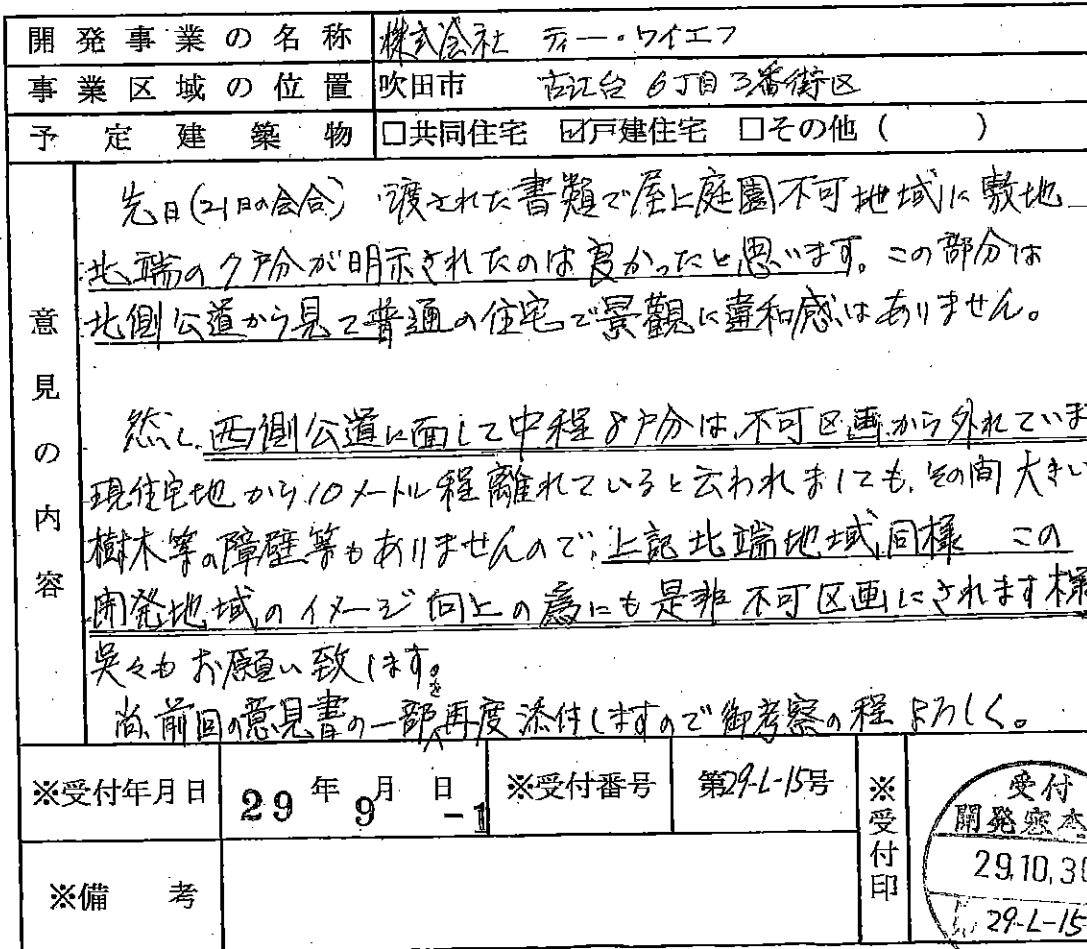 開発事業の名称 株式会社 ティー・ワイエフ
事業区域の位置 吹田市 古江台 6丁目3番街区
予定建築物 □共同住宅 ☑戸建住宅 □その他（ ）
意見の内容
先日(21日の会合) 渡された書類で屋上庭園不可地域に敷地
北端の7戸分が明示されたのは良かったと思います。この部分は
北側公道から見て普通の住宅で景観に違和感はありません。
然し、西側公道に面して中程8戸分は、不可区画から外れていま
現住宅地から10メートル程離れていると云われましても、その間大きい
樹木等の障壁等もありませんので、上記北端地域同様 この
開発地域のイメージ向上の為にも是非不可区画にされます様
呉々もお願い致します。
尚、前回の意見書の一部を再度添付しますので御考察の程よろしく。
※受付年月日 29年9月-1日 ※受付番号 第29-L-15号 ※受付印
受付
開発審査
29.10.30
29-L-15
※備考